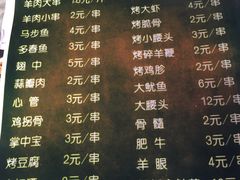 羊肉大串
羊肉小串 2元/串
马步鱼 4元/串
多春鱼 3元/串
翅中 5元/串
蒜瓣肉 2元/串
心管 3元/串
鸡拐骨 3元/串
掌中宝 3元/串
烤豆腐 2元/串
烤大虾
烤脆骨 2元/串
烤小腰头 3元/串
烤碎羊鞭 2元/串
烤鸡胗 2元/串
大鱿鱼 6元/串
大腰头 12元/串
骨髓 2元/串
肥牛 3元/串
羊眼 4元/串